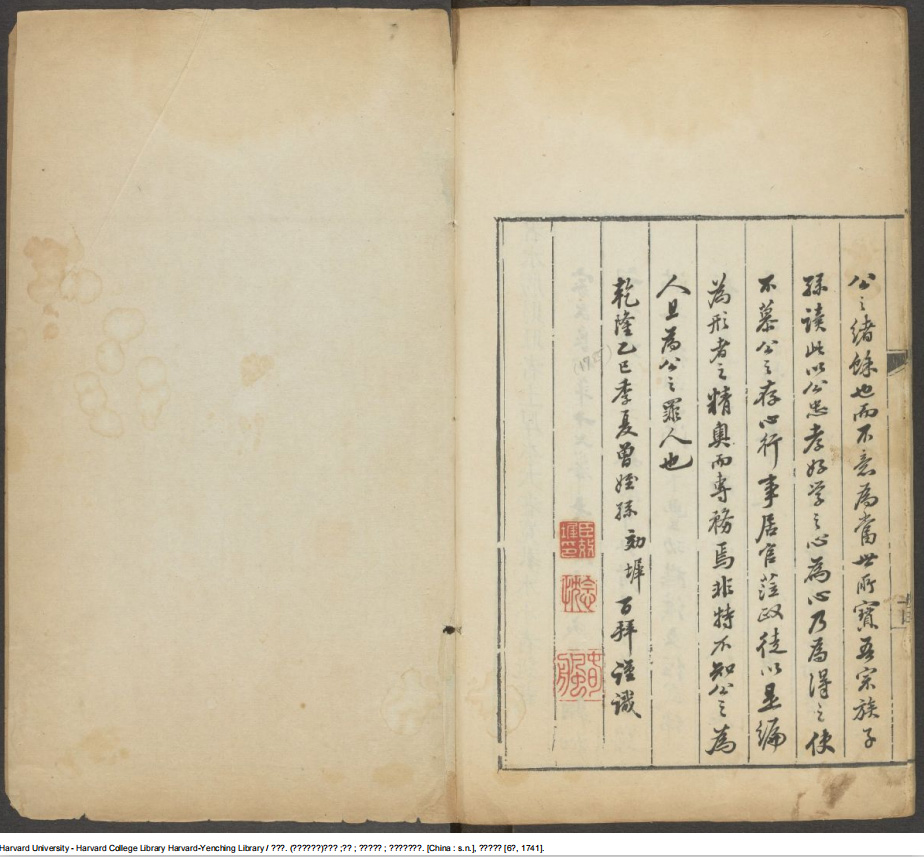 公之緒餘也而不意為當世所寶吾宗族子
孫讀此以公忠孝好學之心為心乃為得之使
不慕公之存心行事居官蒞政徒以是編
為形者之精奧而專務焉非特不知公之為
人且為公之罪人也
乾隆乙巳季夏曾姪孫 劾墀 百拜謹識
(1785)
Harvard University - Harvard College Library Harvard-Yenching Library / ???. (??????)??? ;?? ; ????? ; ???????. [China : s.n.], ????? [6?, 1741].